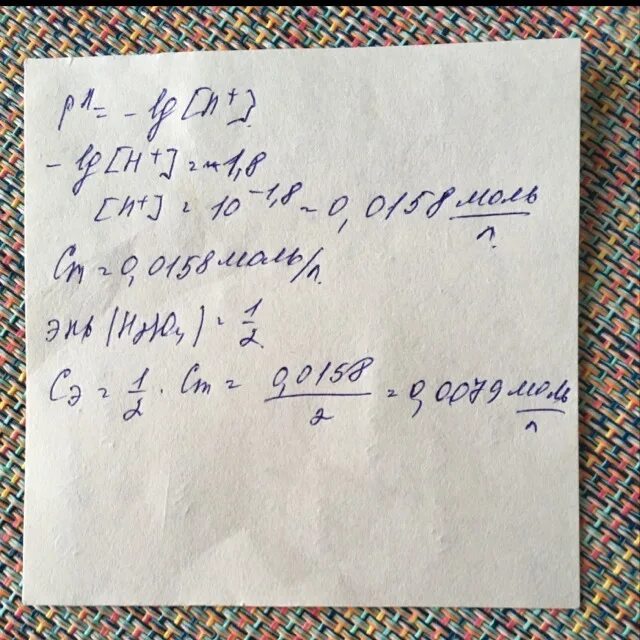 pH = - lg [H⁺].
- lg [H⁺] = -1,8
[H⁺] = 10⁻¹,⁸ = 0,0158 моль/л
Cm = 0,0158 моль/л.
(H₂SO₄) = 1/2
Cэ = 1/2 · Cm = 0,0158/2 = 0,0079 моль/л